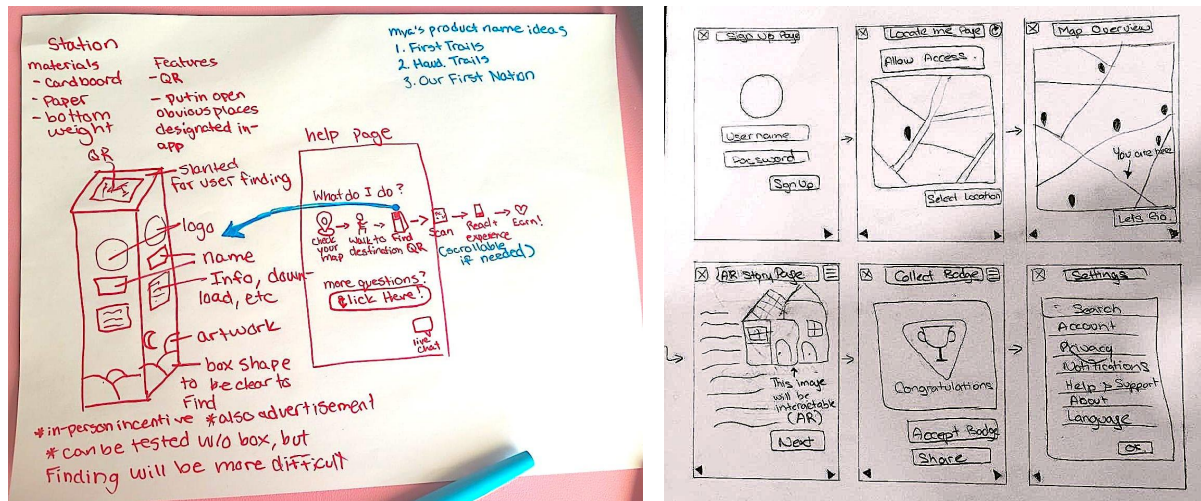 Station
materials
- Cardboard
- Paper
- bottom
weight
Features
- QR
- Put in open
obvious places
designated in-
app
mya's product name ideas
1. First Trails
2. Haud. Trails
3. Our First Nation
QR
slanted
for user finding
logo
name
Info, down-
load, etc
artwork
box shape
to be clear to
find
help page
What do I do?
Check
your
map
walk to
destination
Find
QR
Scan
Read +
experience
Earn!
(scrollable
if needed)
more questions?
Click Here!
live
chat
*in-person incentive *also advertisement
* can be tested w/o box, but
Finding will be more difficult
Sign Up Page
Username
Password
Sign Up
Locate me Page
Allow Access.
Select Location
Map Overview
You are here
Lets Go.
AR Story Page
This image
will be
interactable
(AR)
Next
Collect Badge
Congratulations
Accept Badge
Share
Settings
Search
Account
Privacy
Notifications
Help & Support
About
Language
OK